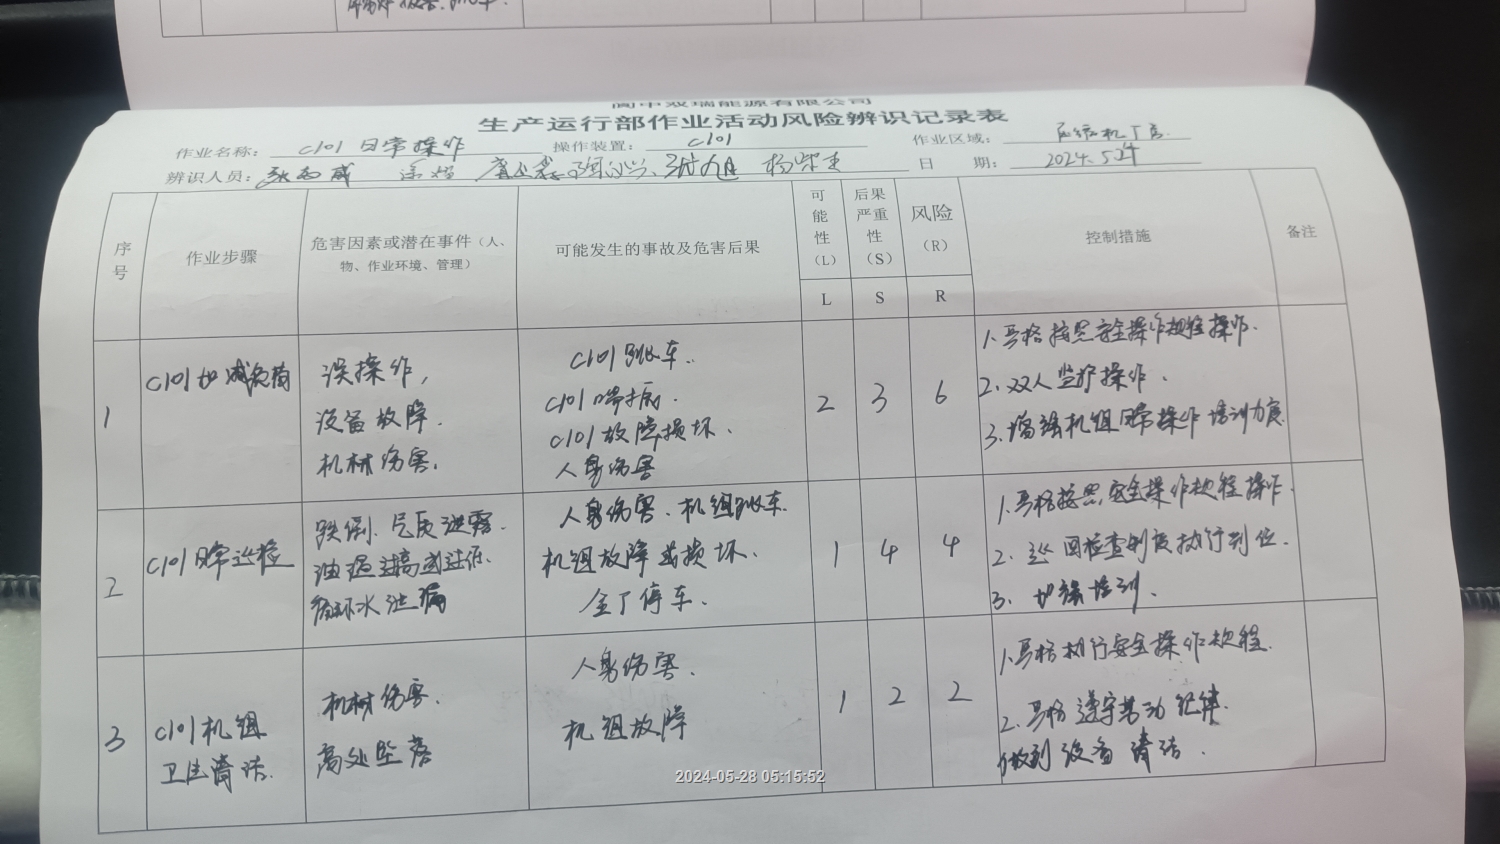 阆中双瑞能源有限公司
生产运行部作业活动风险辨识记录表
作业名称: C101日常操作 操作装置: C101 作业区域: 压缩机厂房
辨识人员: 日 期: 2024.5.24
序号 作业步骤 危害因素或潜在事件(人、物、作业环境、管理) 可能发生的事故及危害后果 可能性(L) 后果严重性(S) 风险(R) 控制措施 备注
L S R
1 C101加减负荷
误操作,
设备故障.
机材伤害.
C101跳车.
C101喘振.
C101故障损坏.
人身伤害
2 3 6
1.严格按照安全操作规程操作.
2.双人监护操作.
3.增强机组日常操作培训力度
2 C101日常巡检
跌倒.气质泄露.
油温过高或过低.
循环水泄漏
人身伤害.机组跳车.
机组故障或损坏.
全厂停车.
1 4 4
1.严格按照安全操作规程操作.
2.巡回检查制度执行到位.
3.加强培训.
3 C101机组
卫生清洁.
机材伤害.
高处坠落
人身伤害.
机组故障
1 2 2
1.严格执行安全操作规程.
2.严格遵守劳动纪律.
做到设备清洁.
2024-05-28 05:15:52